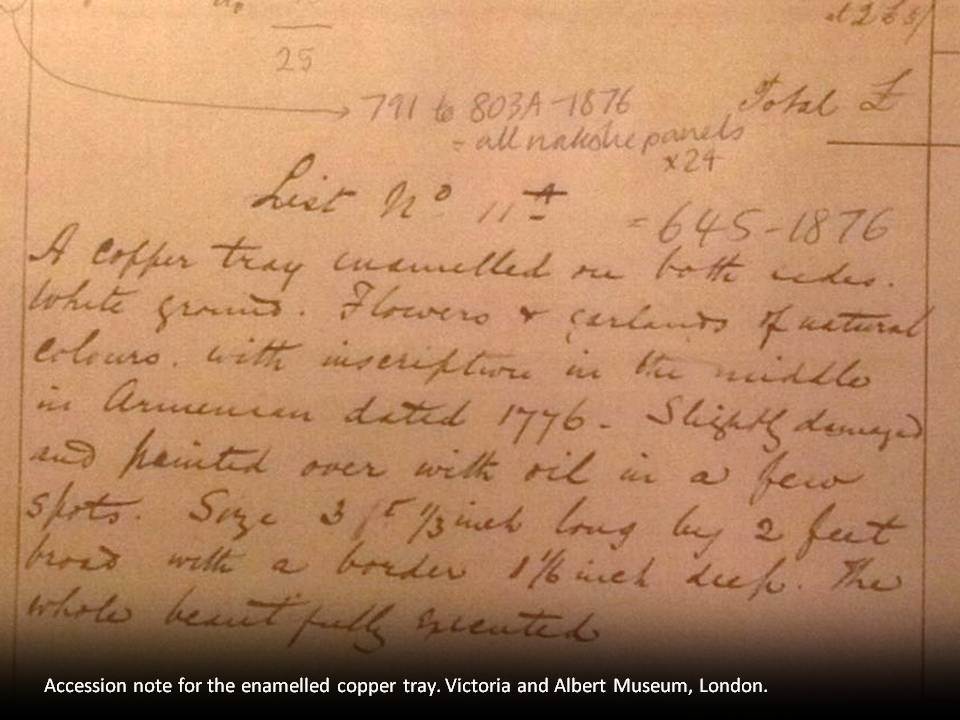 25
791 to 803A-1876
= all nakshe panels
x24
Total £
List No 11A = 645-1876
A copper tray enamelled on both sides.
White ground. Flowers & garlands of natural
colours. with inscription in the middle
in Armenian dated 1776. Slightly damaged
and painted over with oil in a few
spots. Size 3 ft 1/3 inch long by 2 feet
broad with a border 1 1/6 inch deep. The
whole beautifully executed
Accession note for the enamelled copper tray. Victoria and Albert Museum, London.